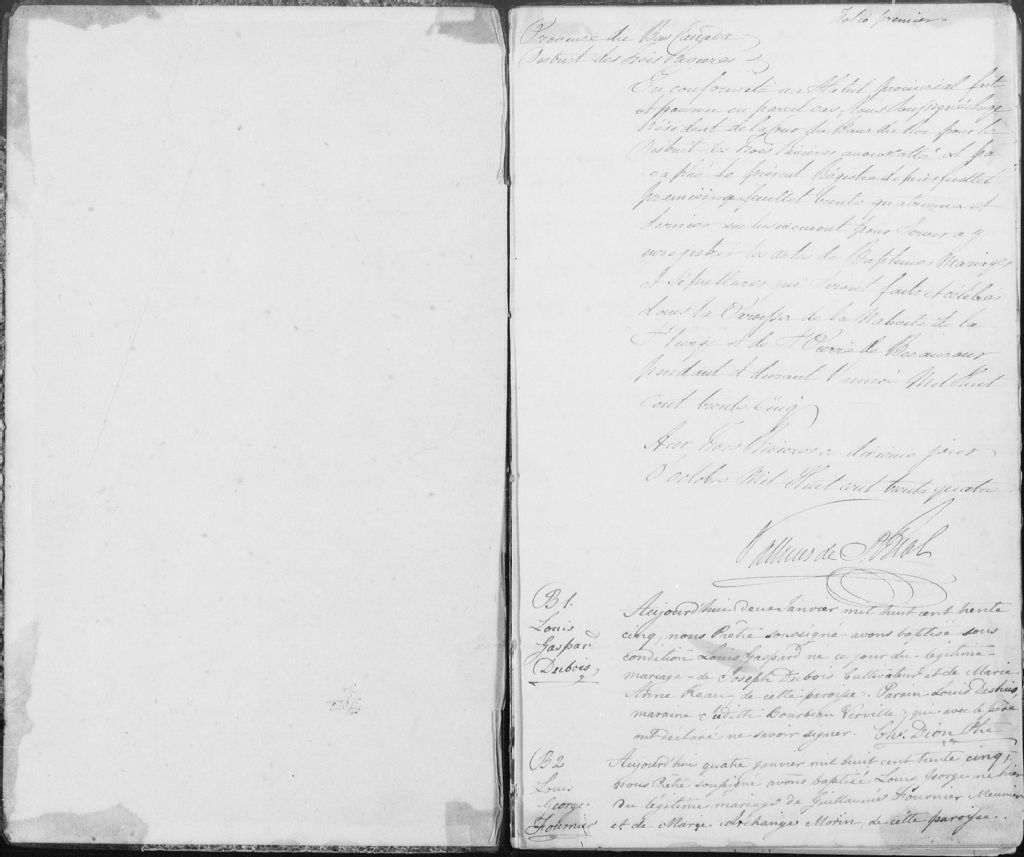 Folio premier
Province du Bas Canada
District des Trois Rivieres
En conformité au Statut provincial fait
et pourvu en pareil cas, Nous Soussigné Juge
Résident de la Cour du Banc du Roi pour le
District des Trois Rivières avons cotté et pa-
raphé le présent Régistre depuis feuillet
premier feuillet trente quatrieme et
dernier pour servir a y
enregistrer les actes de Baptemes Mariages
et Sépultures qui seront faits et célébrés
dans la Paroisse de la Nativité de la
Ste Vierge et de St Pierre de Becancour
pendant et durant l'année Mil Huit
cent trente Cinq
Aux Trois Rivieres ce dixieme jour
d'octobre Mil Huit cent trente quatre
Vallieres de St Réal
B 1.
Louis
Gaspard
Dubois
Aujourd'hui deux Janvier mil huit cent trente
cinq, nous Prêtre soussigné avons baptisé sous
condition Louis Gaspard né ce jour du légitime
mariage de Joseph Dubois Cultivateur et de Marie
Anne Reau, de cette paroisse. Parain Louis Deshaies
maraine Judith Bourbeau Verville, qui avec le père
ont déclaré ne savoir signer. Chs. Dion Ptre
B2
Louis
George
Fournier
Aujourd'hui quatre janvier mil huit cent trente cinq,
nous Prêtre soussigné avons baptisé Louis George né hier
du légitime mariage de Guillaume Fournier Meunier
et de Marie Archange Morin, de cette paroisse.